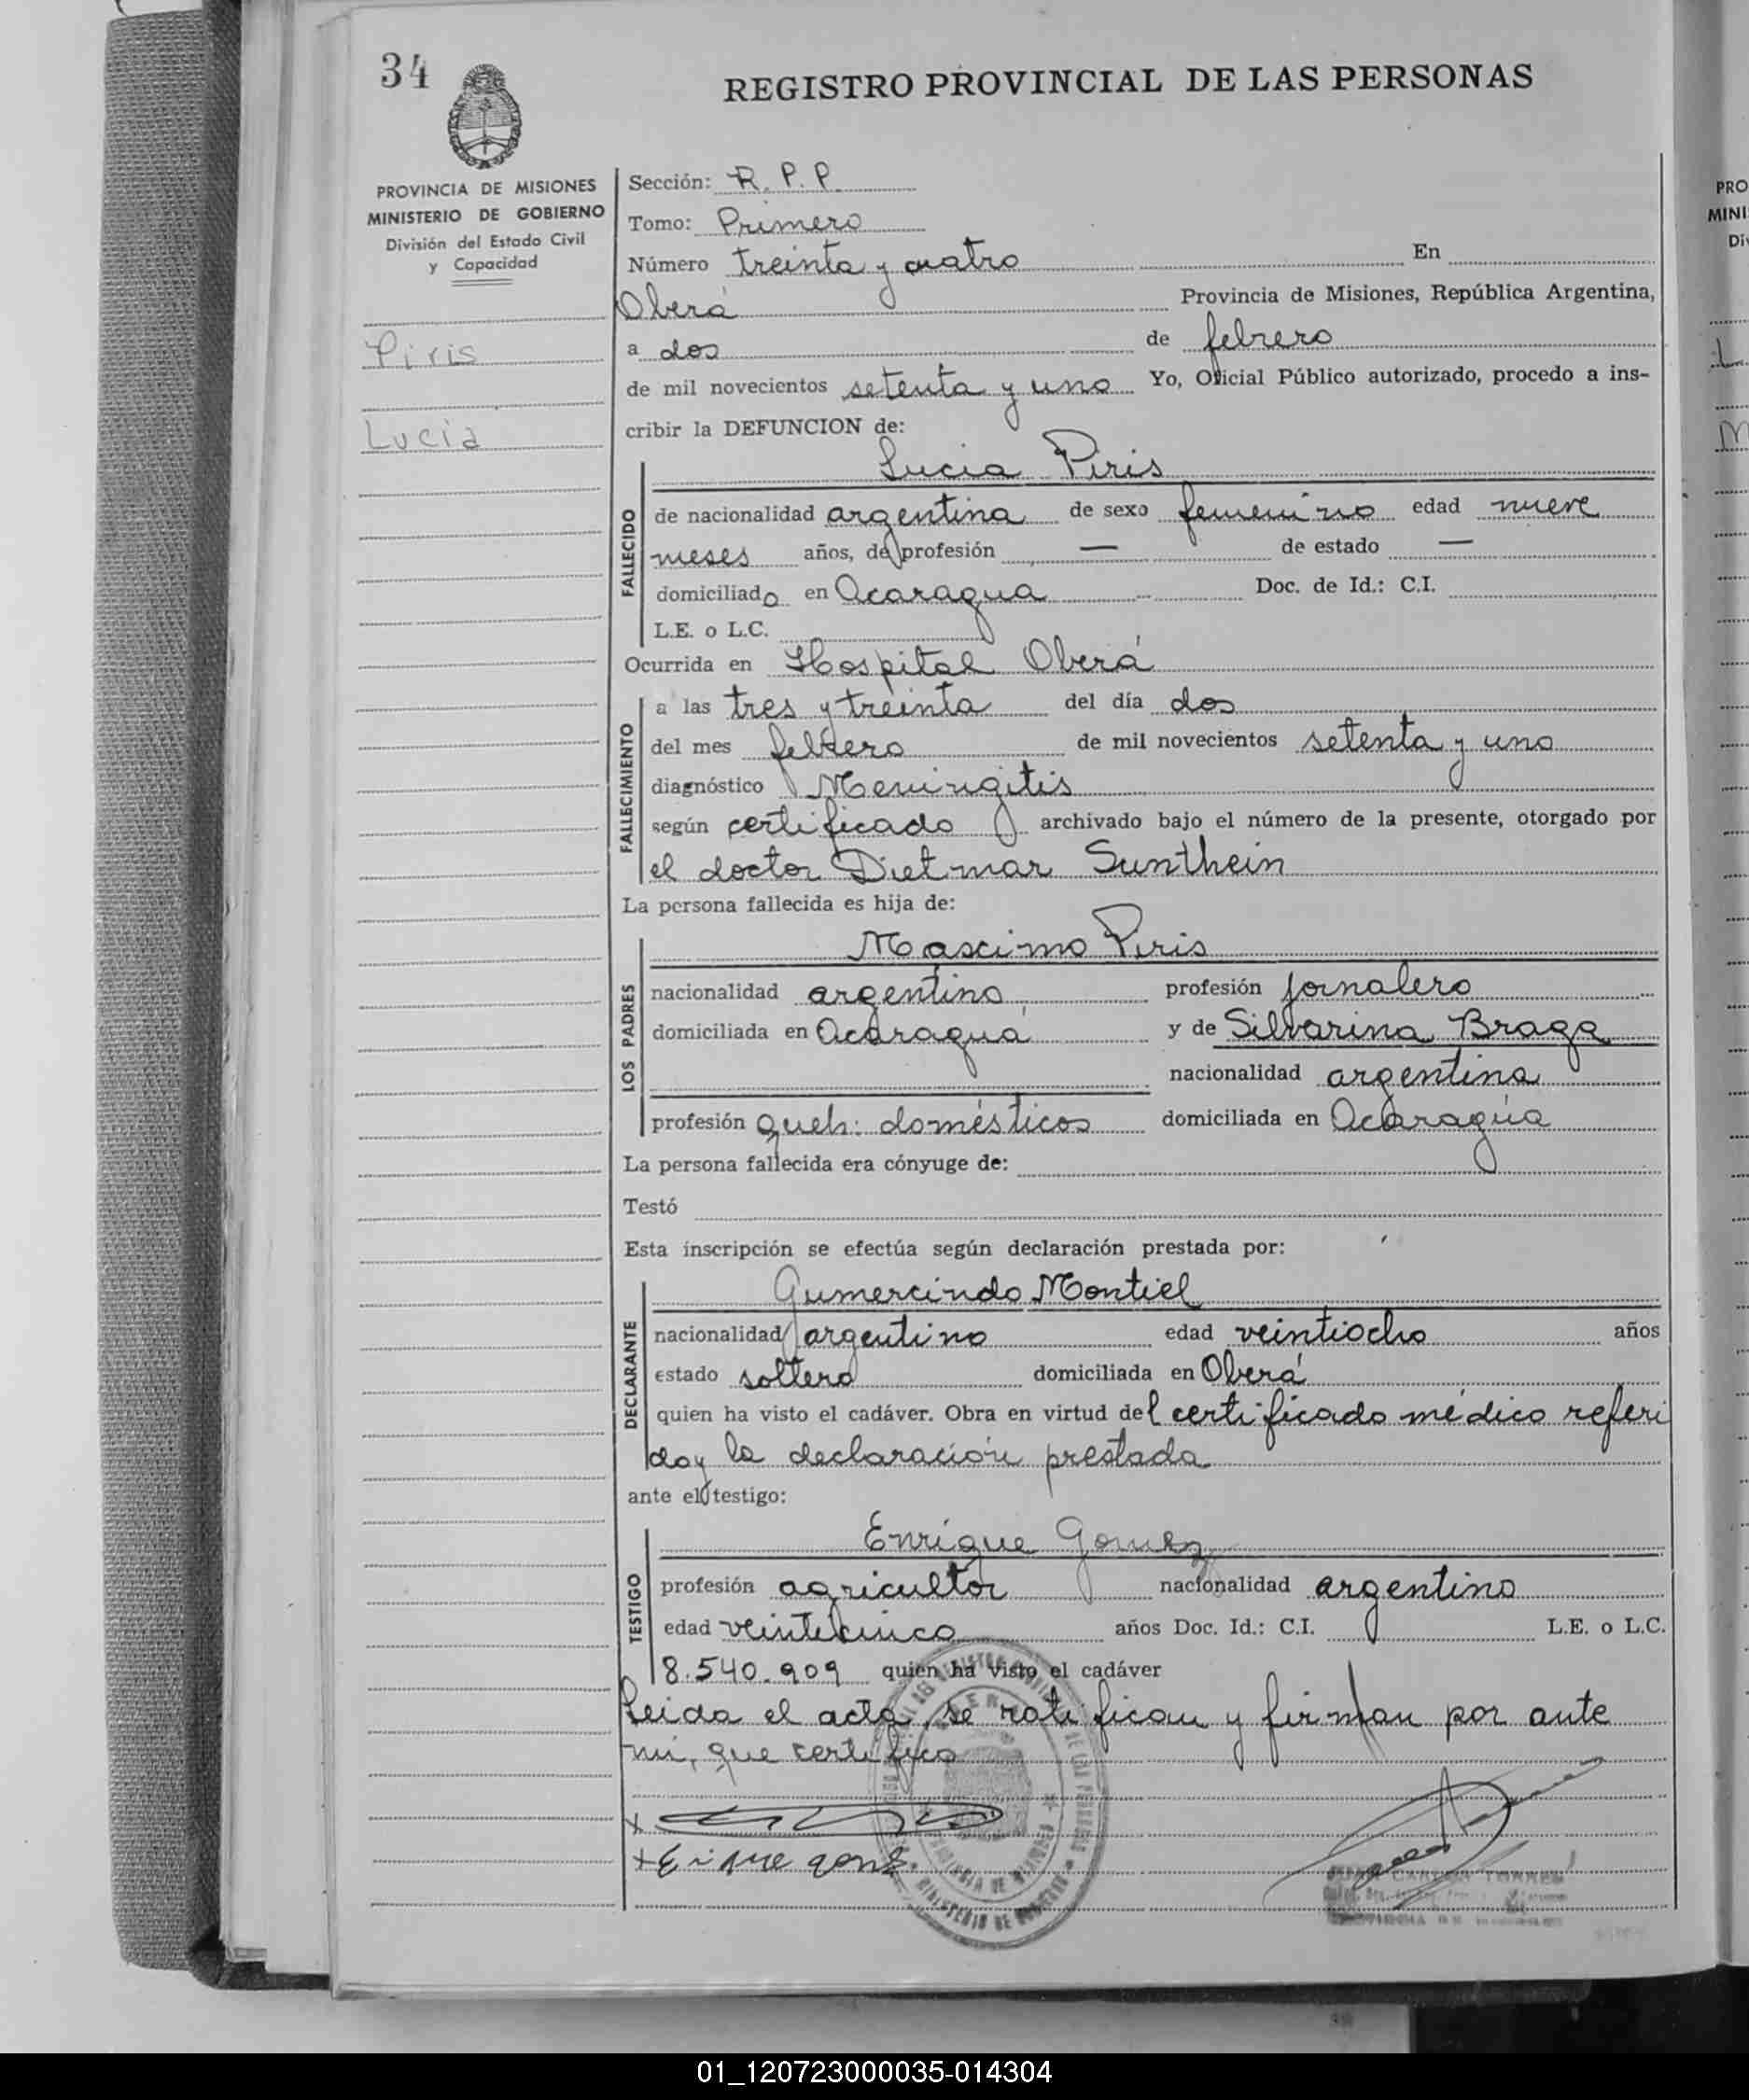 34
REGISTRO PROVINCIAL DE LAS PERSONAS
PROVINCIA DE MISIONES
MINISTERIO DE GOBIERNO
División del Estado Civil
y Capacidad
Piris
Lucia
Sección: R. P. P.
Tomo: Primero
Número treinta y cuatro En
Oberá Provincia de Misiones, República Argentina,
a dos de febrero
de mil novecientos setenta y uno Yo, Oficial Público autorizado, procedo a ins-
cribir la DEFUNCION de:
Lucia Piris
FALLECIDO
de nacionalidad argentina de sexo femenino edad nueve
meses años, de profesión — de estado —
domiciliado en Acaragua Doc. de Id.: C.I.
L.E. o L.C.
Ocurrida en Hospital Oberá
FALLECIMIENTO
a las tres y treinta del día dos
del mes febrero de mil novecientos setenta y uno
diagnóstico Meningitis
según certificado archivado bajo el número de la presente, otorgado por
el doctor Dietmar Sunthein
La persona fallecida es hija de:
Mascimo Piris
LOS PADRES
nacionalidad argentino profesión jornalero
domiciliada en Acaraguá y de Silvarina Braga
nacionalidad argentina
profesión queh: domésticos domiciliada en Acaragúa
La persona fallecida era cónyuge de:
Testó
Esta inscripción se efectúa según declaración prestada por:
Gumercindo Montiel
DECLARANTE
nacionalidad argentino edad veintiocho años
estado soltero domiciliada en Oberá
quien ha visto el cadáver. Obra en virtud del certificado médico referi
do y la declaración prestada
ante el testigo:
Enrique Gomez
TESTIGO
profesión agricultor nacionalidad argentino
edad veinticinco años Doc. Id.: C.I. L.E. o L.C.
8.540.909 quien ha visto el cadáver
Leida el acta, se ratifican y firman por ante
mi, que certifico
PRO
MINI
01_120723000035-014304